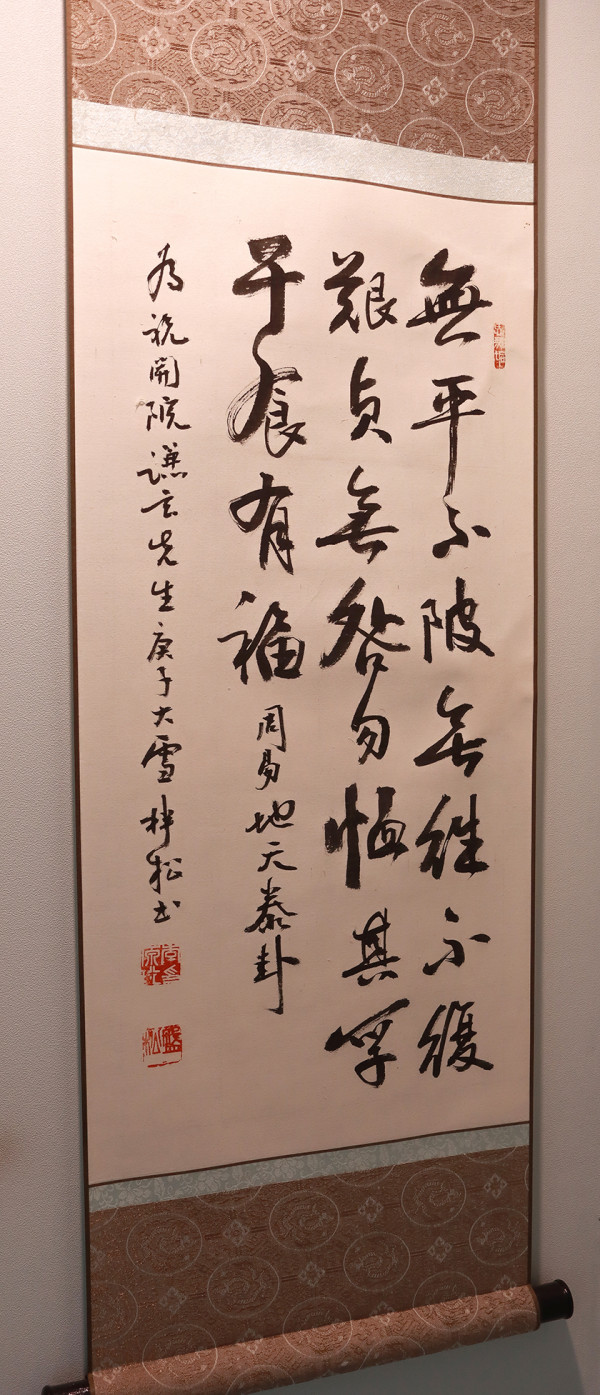 無平不陂無往不復
艱貞無咎勿恤其孚
于食有福 周易地天泰卦
为祝開院謙玄先生庚子大雪 松书